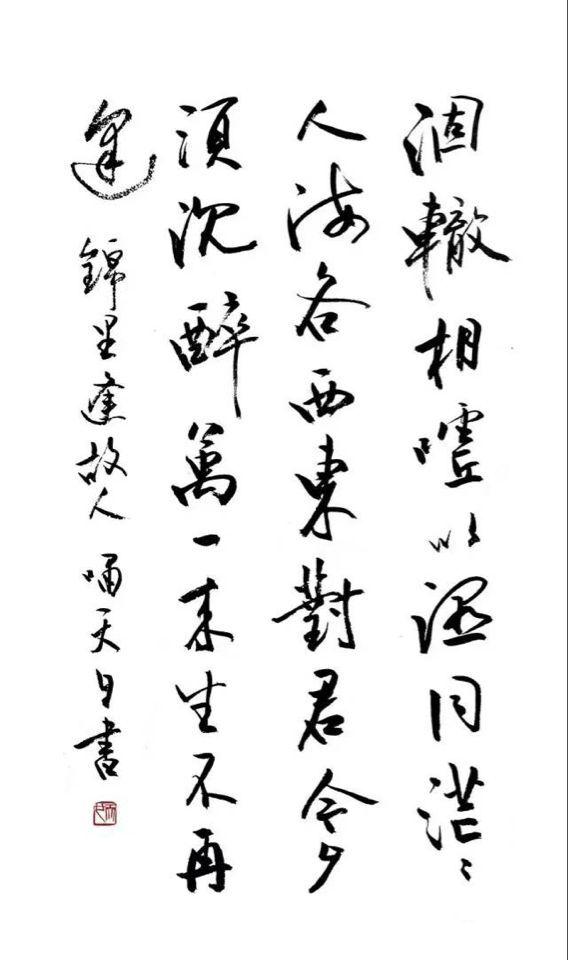 涸轍相噓以濕同茫〻
人海各西東對君今夕
須沉醉萬一來生不再
逢 錦里逢故人 嘯天自書